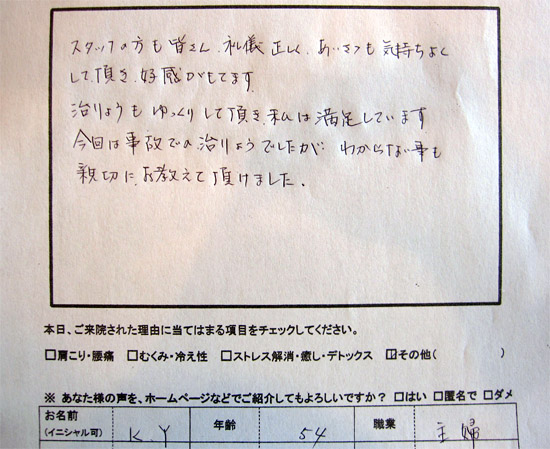 スタッフの方も皆さん、礼儀正しく、あいさつも気持ちよく
して頂き、好感がもてます。
治りょうもゆっくりして頂き、私は満足しています
今回は事故での治りょうでしたが、わからない事も
親切にお教えて頂けました。
本日、ご来院された理由に当てはまる項目をチェックしてください。
□肩こり・腰痛 □むくみ・冷え性 □ストレス解消・癒し・デトックス ☑その他( )
※ あなた様の声を、ホームページなどでご紹介してもよろしいですか? □はい □匿名で □ダメ
お名前 (イニシャル可) K.Y 年齢 54 職業 主婦